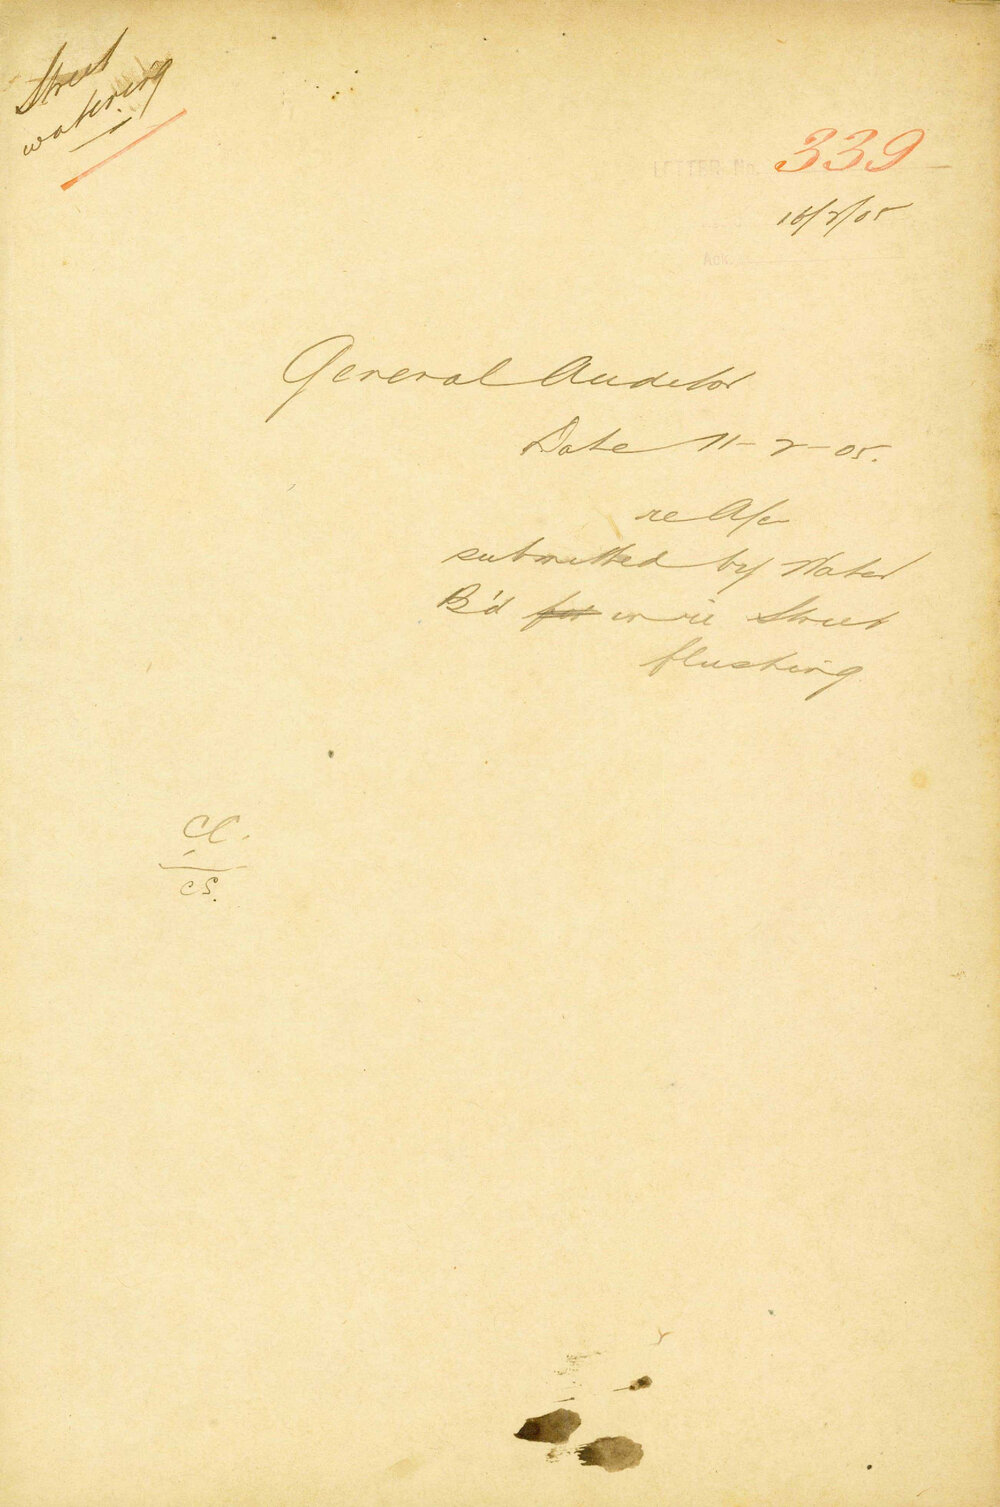 Street
watering
LETTER No. 339
16/2/05
Ack.
General Auditor
Date 11-2-05.
re A/c
submitted by Water
B'd for in re Street
flushing
CC.
CS.